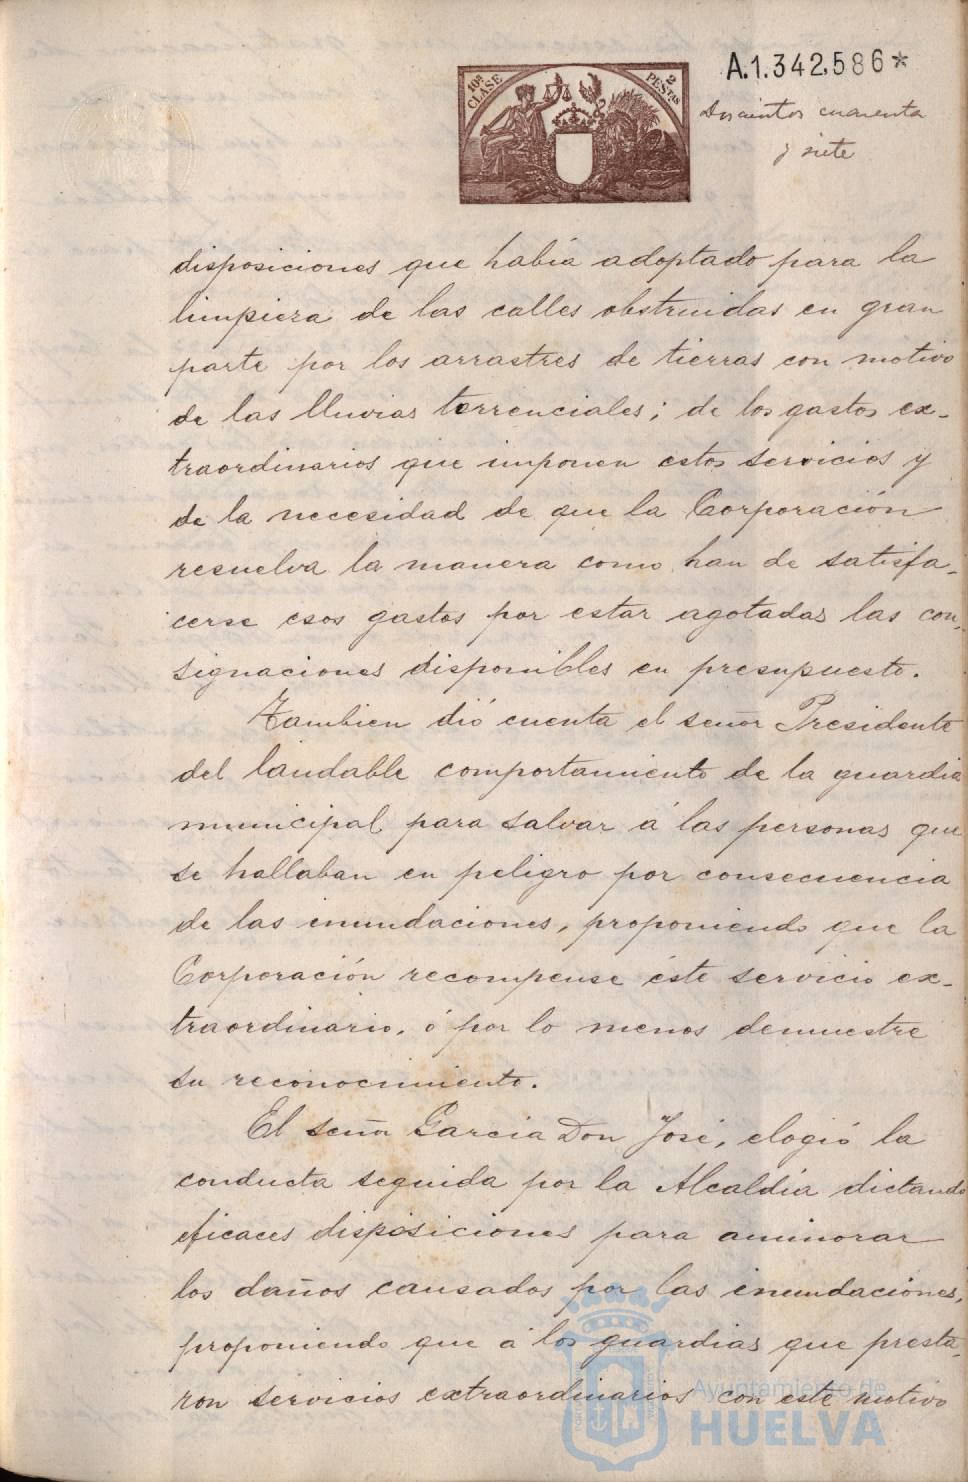 A.1.342,586*
10ª CLASE
2 PESTAS
Doscientos cuarenta
y siete
disposiciones que había adoptado para la
limpieza de las calles obstruidas en gran
parte por los arrastres de tierras con motivo
de las lluvias torrenciales; de los gastos ex-
traordinarios que imponen estos servicios y
de la necesidad de que la Corporación
resuelva la manera como han de satisfa-
cerse esos gastos por estar agotadas las con-
signaciones disponibles en presupuesto.
Tambien dió cuenta el señor Presidente
del laudable comportamiento de la guardia
municipal para salvar á las personas que
se hallaban en peligro por consecuencia
de las inundaciones, proponiendo que la
Corporación recompense éste servicio ex-
traordinario, ó por lo menos demuestre
su reconocimiento.
El señor Garcia Don José, elogió la
conducta seguida por la Alcaldía dictando
eficaces disposiciones para aminorar
los daños causados por las inundaciones,
proponiendo que á los guardias que presta-
ron servicios extraordinarios con este motivo
Ayuntamiento de
HUELVA